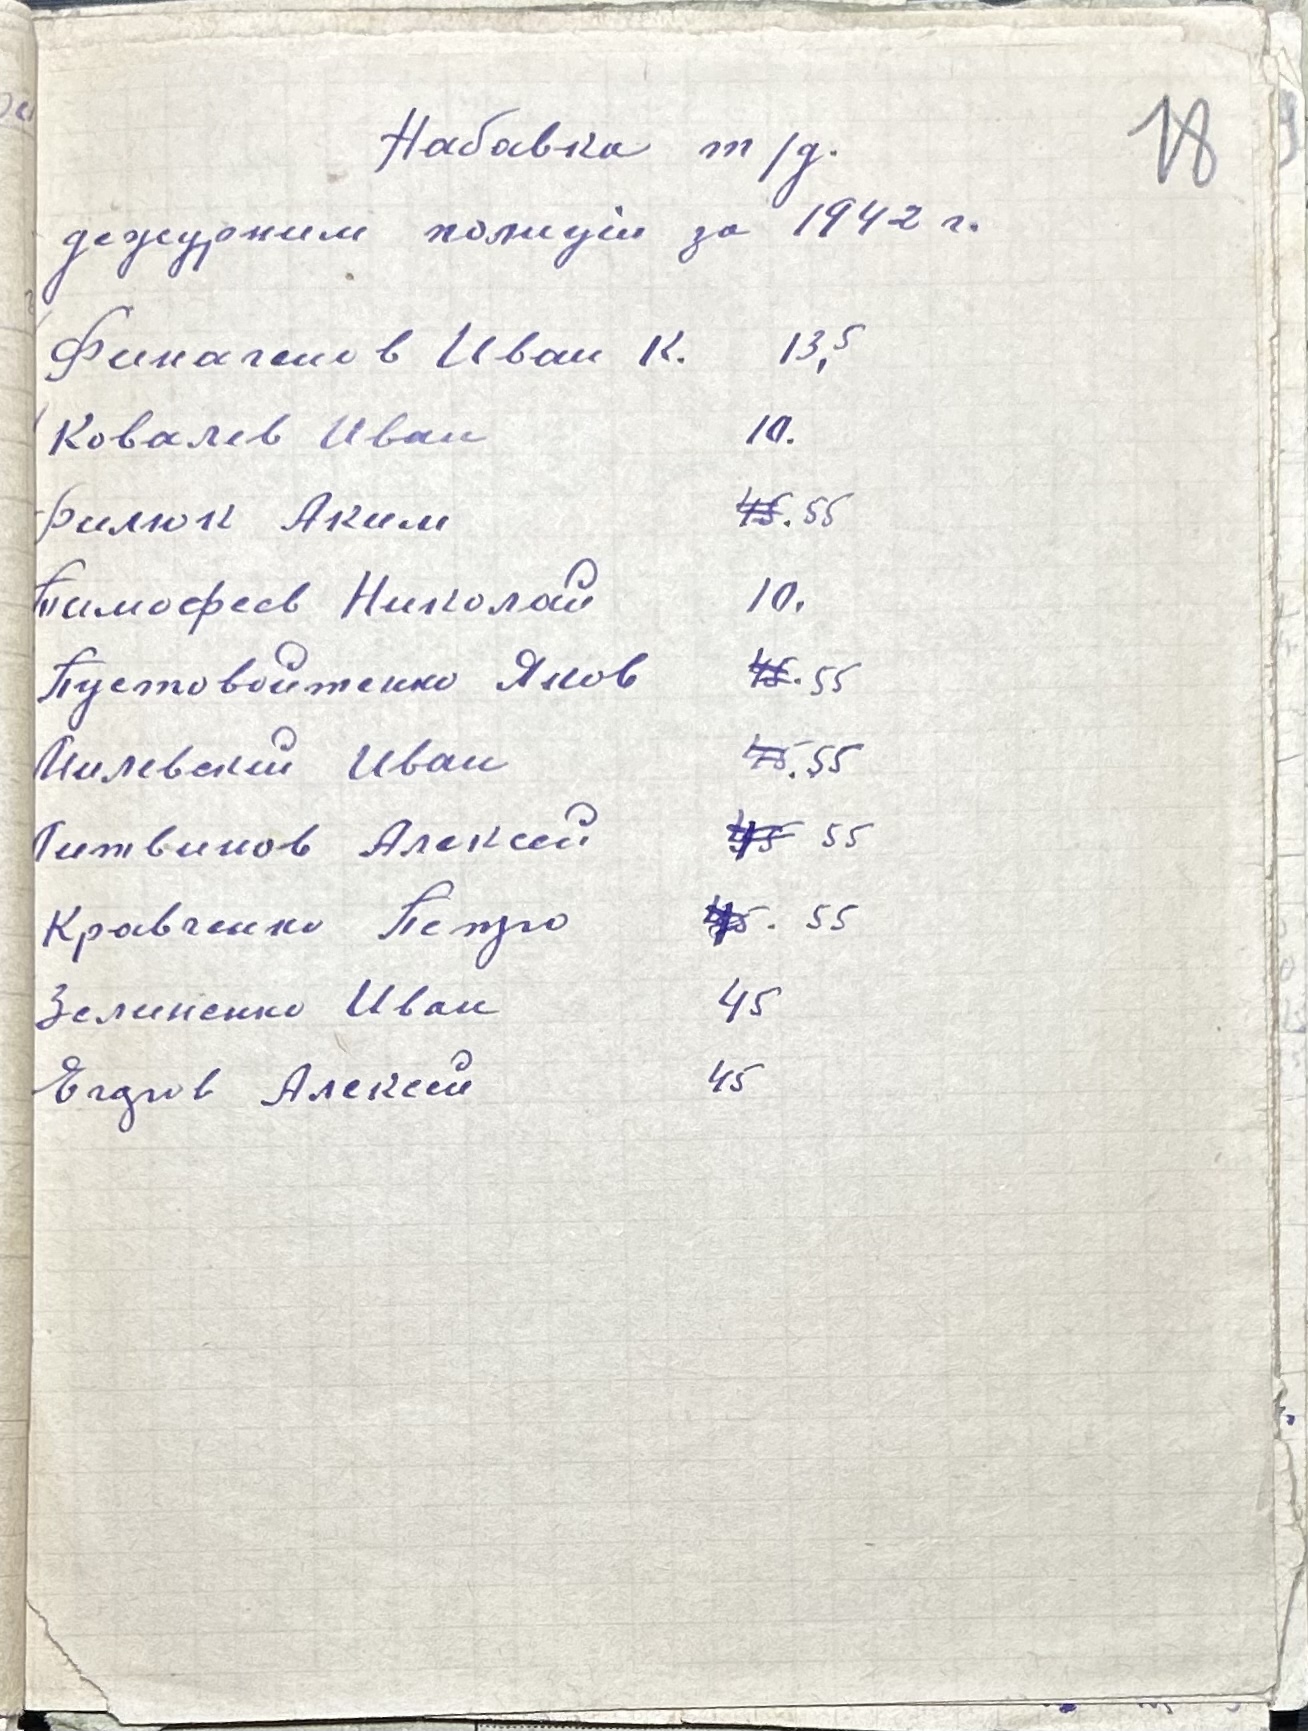 18
Набавка т/д.
дежурним поліціи за 1942 г.
Иван К. 13,5
Ковалев Иван 10.
Филюк Аким 45. 55
Тимофеев Николай 10.
Пустовойтенко Яков 45. 55
Милевский Иван 45. 55
Литвинов Алексей 45 55
Кравченко Петро 45. 55
Зелиненко Иван 45
Алексей 45